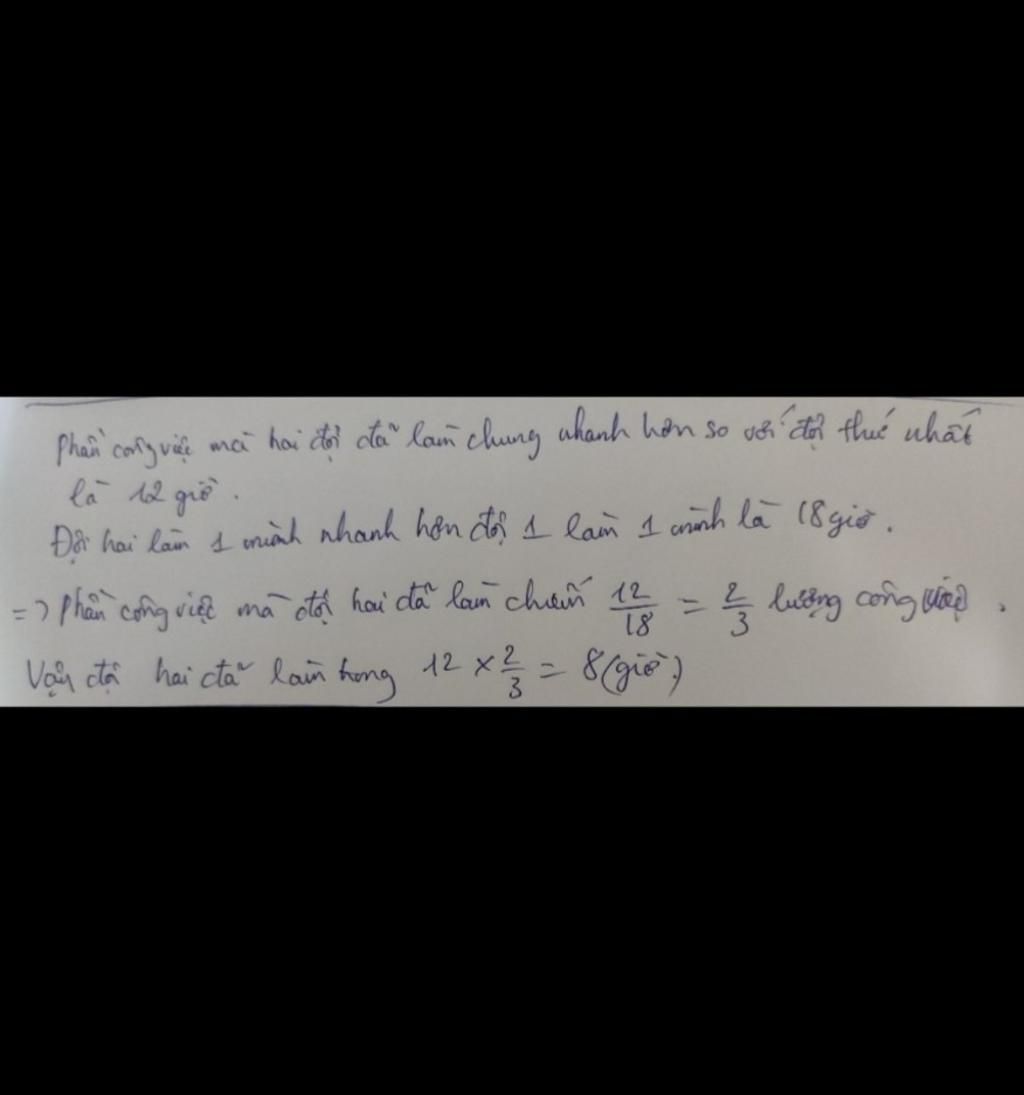 Phần công việc mà hai đội đã làm chung nhanh hơn so với đội thứ nhất
là 12 giờ.
Đội hai làm 1 mình nhanh hơn đội 1 làm 1 mình là 18 giờ.
=> Phần công việc mà đội hai đã làm chiếm 12/18 = 2/3 lượng công việc.
Vậy đội hai đã làm trong 12 × 2/3 = 8 (giờ)